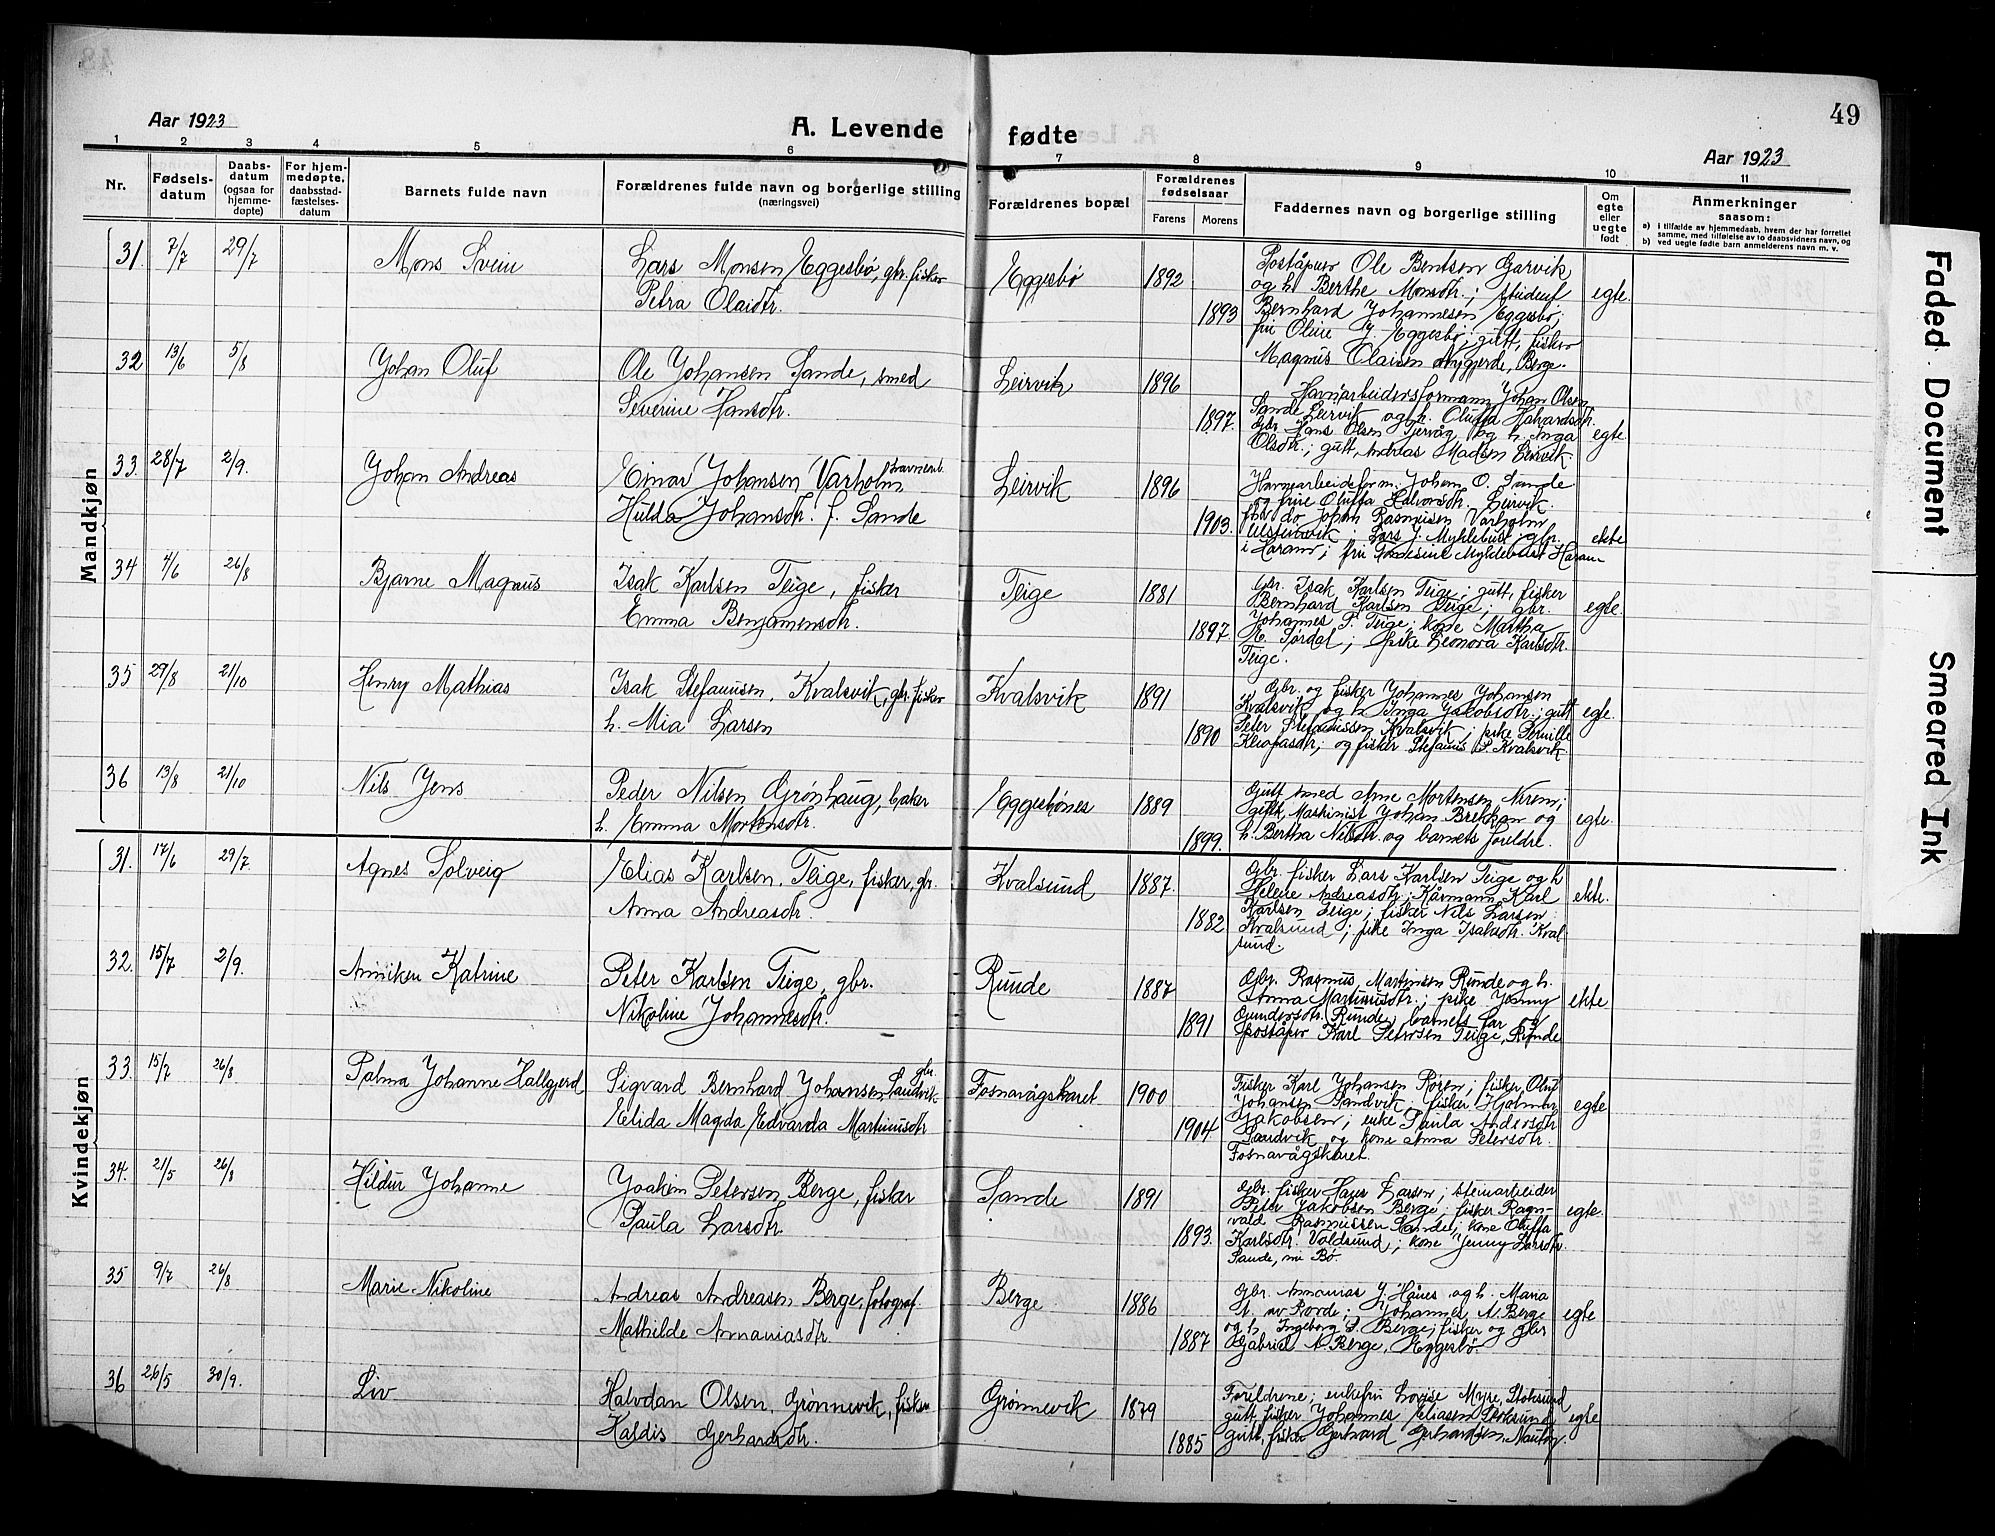 48
49
Aar 1923
A. Levende fødte
Aar 1923
1 2 3 4 5 6 7 8 9 10 11
Nr.
Fødsels-
datum
Daabs-
datum
(ogsaa for
hjemme-
døpte)
For hjem-
medøpte,
daabsstad-
fæstelses-
datum
Barnets fulde navn
Forældrenes fulde navn og borgerlige stilling
(næringsvei)
Forældrenes bopæl
Forældrenes
fødselsaar
Farens Morens
Faddernes navn og borgerlige stilling
Om
egte
eller
uegte
født
Anmerkninger
saasom:
a) i tilfælde av hjemmedaab, hvem der har forrettet
samme, med tilføielse av to daabsvidners navn, og
b) ved uegte fødte barn anmelderens navn m. v.
Mandkjøn
31. 7/7 29/7 Mons Svein
Lars Monsen Eggesbø, gbr. fisker
Petra Olaidtr.
Eggesbø 1892 1893
Poståpner Ole Bentsen Garvik
og h. Berthe Monsdtr.; student
Bernhard Johannesen Eggesbø;
fru Oline J. Eggesbø; gutt, fisker
Magnus Olaisen Nygjerde, Berge.
egte.
32 13/6 5/8 Johan Oluf
Ole Johansen Sande, smed
Severine Hansdtr.
Leirvik 1896 1897.
Havnarbeidersformann Johan Olsen
Sande Leirvik og h. Oluffa Halvardsdtr.
Gbr. Hans Olsen Tjervåg og h. Inga
Olsdtr.; gutt, Andreas Madsen Leirvik.
egte.
33. 28/7 2/9. Johan Andreas
Einar Johansen Varholm, havnearb.
Hulda Johansdtr. f. Sande
Leirvik 1896 1903.
Havnearbeidsform. Johan O. Sande
og frue Oluffa Halvorsdtr. Leirvik.
do Johan Rasmusen Varholm
Ulsteinvik Lars J. Myklebust gbr.
i Haram; fru Myklebust Haram
ekte
34 4/6 26/8 Bjarne Magnus
Isak Karlsen Teige, fisker
Emma Benjamensdtr.
Teige 1881 1897
Gbr. Isak Karlsen Teige; gutt, fisker
Bernhard Karlsen Teige; gbr.
Johannes P. Teige; kone Martha
E. Sørdal; pike Leonora Karlsdtr.
Teige.
egte.
35 29/8 21/10 Henry Mathias
Isak Stefanusen, Kvalsvik, gbr. fisker
h. Mia Larsen
Kvalsvik 1891 1890
Gbr. og fisker Johannes Johansen
Kvalsvik og h. Inga Jakobsdtr.; gutt
Peter Stefanussen Kvalsvik; pike Pernille
Kleopasdtr; og fisker Stefanus P. Kvalsvik.
egte.
36 13/8 21/10 Nils Jens
Peder Nilsen Grønhaug, baker
h. Emma Mortensdtr.
Eggesbønes 1889 1899.
Gutt smed Arne Mortensen Nerem;
gutt, Maskinist Johan Brekkan og
h. Bertha Nilsdtr. og barnets foreldre.
egte.
Kvindekjøn
31. 17/6 29/7 Agnes Solveig
Elias Karlsen, Teige, fisker, gbr.
Anna Andreasdtr.
Kvalsund 1887. 1882
Gbr. fisker Lars Karlsen Teige og h
Helene Andreasdtr; Kårmann Karl
Karlsen Teige; fisker Nils Larsen
Kvalsund; pike Inga Isaksdtr. Kval-
sund.
ekte.
32. 15/7 2/9. Anniken Katrine
Peter Karlsen Teige, gbr.
Nikoline Johannesdtr.
Runde 1887 1891
Gbr. Rasmus Martinsen Runde og h.
Anna Martinusdtr.; pike Jenny
Gundersdtr. Runde; barnets far og
poståpner Karl Petersen Teige, Runde
ekte
33. 15/7 26/8 Palma Johanne Hallgjerd
Sigvard Bernhard Johansen Sandvik gbr.
Elida Magda Edvarda Martinusdtr
Fosnavågskaret 1900 1904
Fisker Karl Johansen Røren; fisker Oluf
Johansen Sandvik; fisker Hjalmar
Jakobsen; enke Paula Andersdtr
Sandvik og kone Anna Petersdtr.
Fosnavågskaret.
egte
34. 21/5 26/8 Hildur Johanne
Joakim Petersen Berge, fisker
Paula Larsdtr.
Sande 1891 1893.
Gbr. fisker Hans Larsen; steinarbeider
Peter Jakobsen Berge; fisker Ragn-
vald Rasmussen Sande; kone Oluffa
Karlsdtr. Voldsund; kone Jenny Larsdtr.
Sande, nu Bø.
egte.
35 9/7 26/8 Marie Nikoline
Andreas Andreasen Berge, fotograf.
Mathilde Ananiasdtr
Berge 1886 1887
Gbr. Annanias J. Hånes og h. Maria
Johannes A. Berge
og h. Ingeborg S. Berge; fisker og gbr
Gabriel A Berge, Eggesbø.
egte
36 26/5 30/9. Liv
Halvdan Olsen, Grønnevik, fisker
Haldis Gerhardsdtr.
Grønnevik 1879 1885
Foreldrene; enkefru Lovise Myre, Stoksund
gutt, fisker Johannes Eliasen Stoksund
gutt, fisker Gerhard Gerhardsen, Nautøy.
egte
Faded Document
Smeared Ink